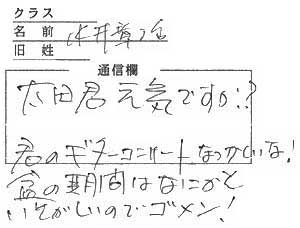 クラス
名前 水井章治
旧姓
通信欄
太田君元気ですか?
君のギターコンサートなつかしいな!
盆の期間はなにかと
いそがしいのでゴメン!